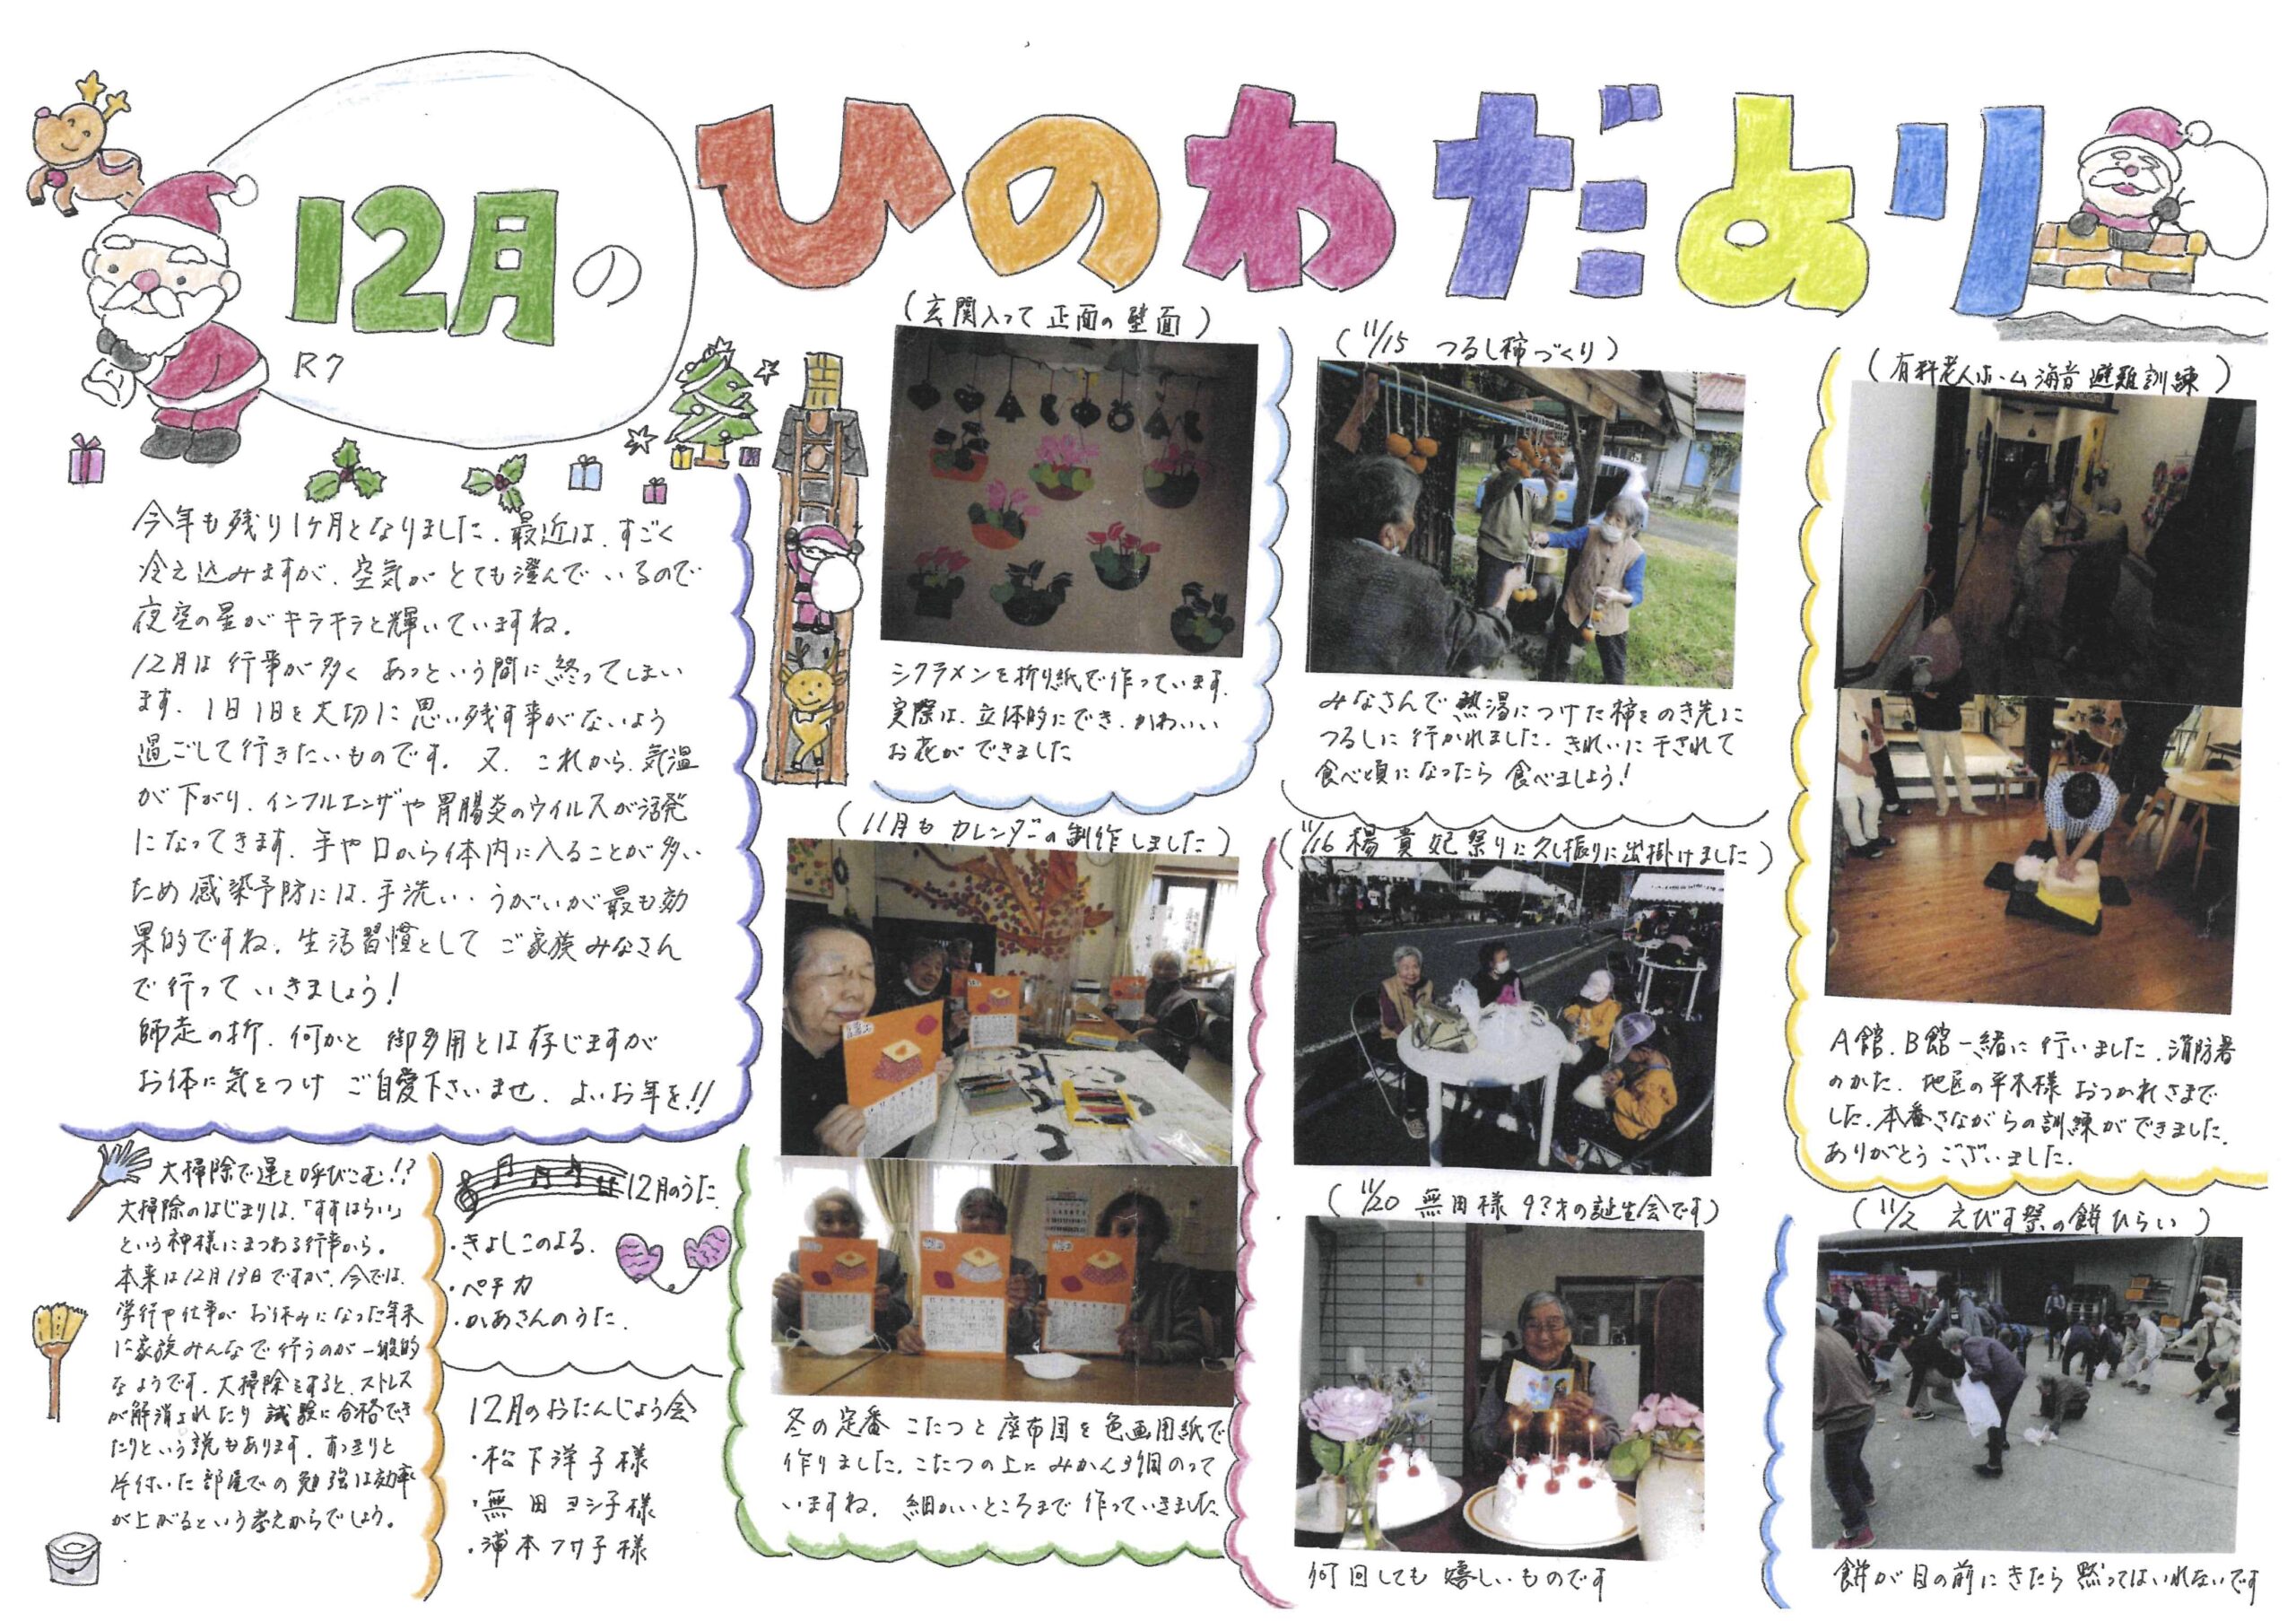 12月の
ひのわだより
R7
今年も残り1ヶ月となりました。最近は、すごく
冷え込みますが、空気がとても澄んでいるので
夜空の星がキラキラと輝いていますね。
12月は行事が多くあっという間に終ってしまい
ます。1日1日を大切に思い残す事がないよう
過ごして行きたいものです。又、これから、気温
が下がり、インフルエンザや胃腸炎のウイルスが活発
になってきます。手や口から体内に入ることが多い
ため感染予防には、手洗い・うがいが最も効
果的ですね。生活習慣としてご家族みなさん
で行っていきましょう!
師走の折、何かと御多用とは存じますが
お体に気をつけご自愛下さいませ。よいお年を!!
大掃除で運を呼びこむ!?
大掃除のはじまりは、「すすはらい」
という神様にまつわる行事から。
本来は12月13日ですが、今では、
学行や仕事がお休みになった年末
に家族みんなで行うのが一般的
なようです。大掃除をすると、ストレス
が解消されたり試験に合格でき
たりという説もあります。すっきりと
片付いた部屋での勉強は効率
が上がるという考えからでしょう。
12月のうた
・きよしこのよる。
・ペチカ
・かあさんのうた。
12月のおたんじょう会
・松下洋子様
・無田ヨシ子様
・浦本フサ子様
(玄関入って正面の壁面)
シクラメンを折り紙で作っています。
実際は、立体的にでき、かわいい
お花ができました
(11月もカレンダーの制作しました)
冬の定番 こたつと座布団を色画用紙で
作りました。こたつの上にみかん3個のって
いますね。細かいところまで作っていきました
(11/15 つるし柿づくり)
みなさんで熱湯につけた柿をのき先に
つるしに行かれました。きれいに干されて
食べ頃になったら食べましょう!
(11/16 楊貴妃祭りに久し振りに出掛けました)
(11/20 無田様 才の誕生会です)
何回しても嬉しいものです
(有料老人ホーム海音避難訓練)
A館、B館一緒に行いました。消防署
のかた、地区の平木様おつかれさまで
した。本番さながらの訓練ができました。
ありがとうございました。
(11/2 えびす祭の餅ひらい)
餅が目の前にきたら黙ってはいれないです